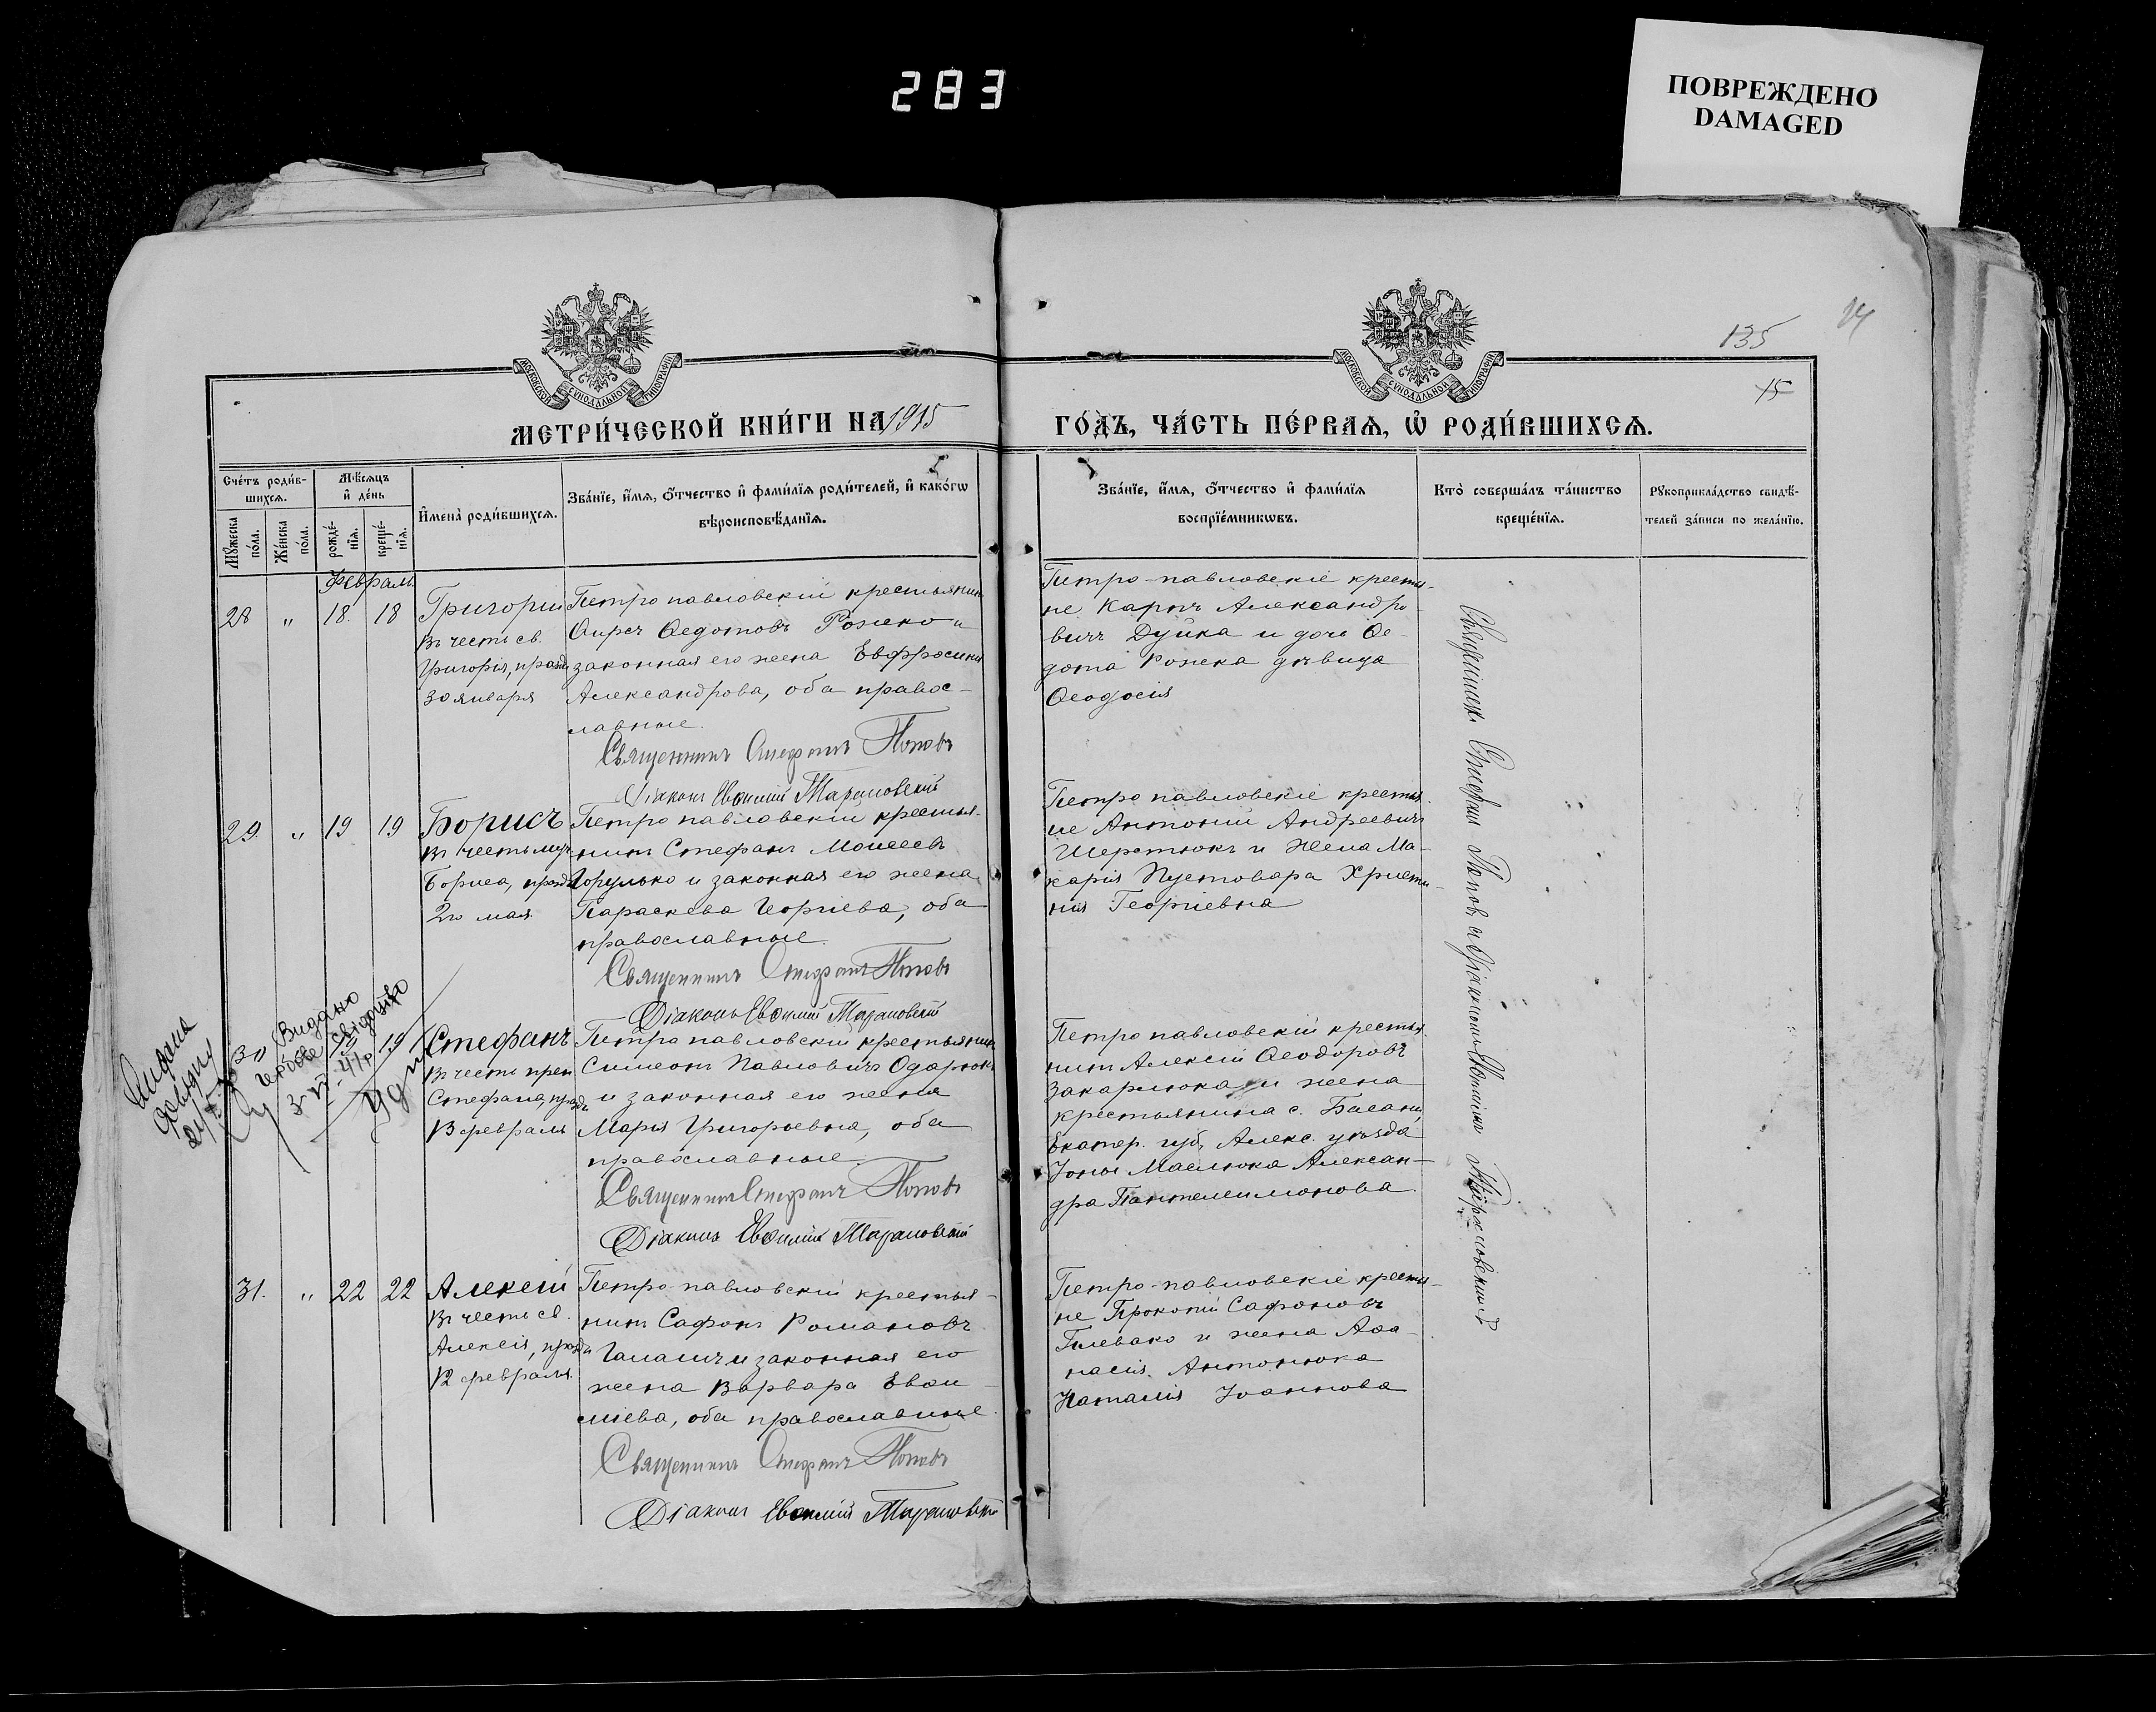 283
ПОВРЕЖДЕНО
DAMAGED
14
135
15
МОСКОВСКОЙ СУНОДАЛЬНОЙ ТИПОГРАФІИ
МОСКОВСКОЙ СУНОДАЛЬНОЙ ТИПОГРАФІИ
МЕТРИ́ЧЕСКОЙ КНИ́ГИ НА 1915
ГО́ДЪ, ЧА́СТЬ ПЕ́РВАѦ, Ѡ҆ РОДИ́ВШИХСѦ.
Сче́тъ роди́в-
шихсѧ.
Мꙋ́жеска
по́ла.
Же́нска
по́ла.
Мѣ́сѧцъ
и҆ де́нь
рожде́-
нїѧ.
креще́-
нїѧ.
И҆мена̀ роди́вшихсѧ.
Зва́нїе, и҆́мѧ, ѻ҆́тчество и҆ фами́лїѧ роди́телей, и҆ како́гѡ
вѣроисповѣ́данїѧ.
Зва́нїе, и҆́мѧ, ѻ҆́тчество и҆ фами́лїѧ
воспрїе́мникѡвъ.
Кто̀ соверша́лъ та́инство
креще́нїѧ.
Рꙋкоприкла́дство свидѣ́-
телей за́писи по жела́нїю.
Февраль
28 " 18. 18
Григорій
въ честь св.
Григорія, празд.
30 января
Петропавловскій крестьянинъ
Ѳирсъ Ѳедотовъ Рожко и
законная его жена Евфросинія
Александрова, оба правос-
лавные.
Священникъ Стефанъ Поповъ
Діаконъ Евѳимій Тарановскій
Петро-павловскіе крестья-
не Карпъ Александро
вичъ Дуйка и дочь Ѳе-
дота Рожка дѣвица
Ѳеодосія
29. " 19 19
Борисъ
въ честь муч.
Бориса, празд.
2го мая
Петропавловскій крестья-
нинъ Стефанъ Моисеевъ
и законная его жена
Параскева Георгіева, оба
православные.
Священникъ Стефанъ Поповъ
Діаконъ Евѳимій Тарановскій
Петропавловскіе крестья-
не Антоній Андреевичъ
Шерстюкъ и жена Ма-
карія Пустовара Христи-
нія Георгіевна
30 " 19
Видано
3-
Стефанъ
въ честь преп
Стефана, празд.
13 февраля
Петропавловскій крестьянинъ
Симеонъ Павловичъ Одарюкъ
и законная его жена
Марія Григорьевна, оба
православные.
Священникъ Стефанъ Поповъ
Діаконъ Евѳимій Тарановскій
Петропавловскій крестья-
нинъ Алексій Ѳеодоровъ
Закарлюка и жена
крестьянина с. Басани,
Екатер. губ, Алекс. уѣзда
Іоны Маслюка Алексан-
дра Пантелеимонова
31. " 22 22
Алексій
въ честь св.
Алексія, празд.
12 февраля.
Петро-павловскій крестья-
нинъ Сафонъ Романовъ
и законная его
жена Варвара Евѳи-
міева, оба православные.
Священникъ Стефанъ Поповъ
Діаконъ Евѳимій Тарановскій
Петро-павловскіе крестья-
не Прокопій Сафоновъ
Гилевако и жена Аѳа-
насія Антонюка
Наталія Іоаннова
Священникъ Стефанъ Поповъ и діаконъ Евѳимій Тарановскій